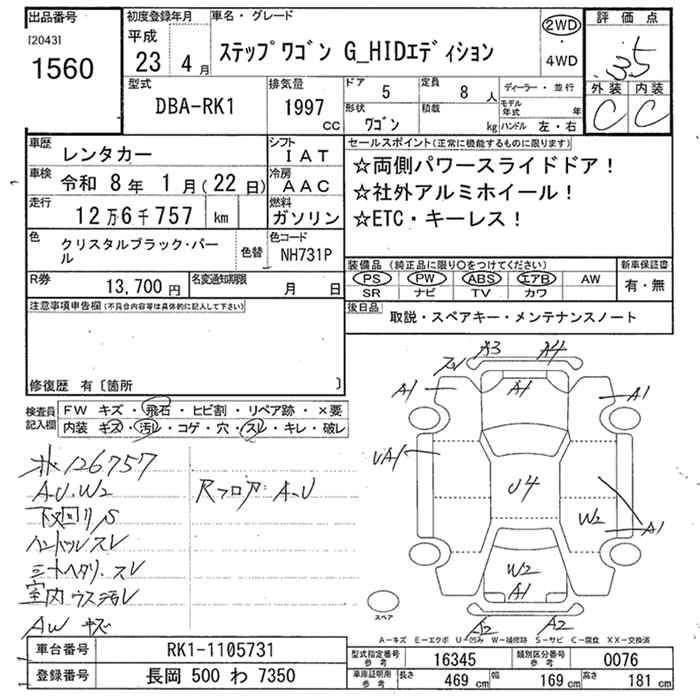 出品番号
[2043]
1560
初度登録年月
平成
23 4 月
車名・グレード
ステップワゴン G_HIDエディション
2WD
・
4WD
評価点
3.5
外装 内装
C C
型式
DBA-RK1
排気量
1997
cc
ドア 5
形状 ワゴン
定員 8 人
積載 kg
ディーラー・並行
モデル年式 年
ハンドル 左・右
車歴 レンタカー
車検 令和 8年 1月(22日)
走行 12万6千757 km
シフト IAT
冷房 AAC
燃料 ガソリン
色 クリスタルブラック・パール
色替
色コード NH731P
R券 13,700 円
名変通知期限 月 日
セールスポイント(正常に機能するものに限ります)
☆両側パワースライドドア!
☆社外アルミホイール!
☆ETC・キーレス!
装備品 (純正品に限り○をつけてください)
PS PW ABS エアB AW
SR ナビ TV カワ
新車保証書
有・無
後日品 取説・スペアキー・メンテナンスノート
注意事項申告欄(不具合内容等は具体的に記入して下さい)
修復歴 有〔箇所 〕
検査員記入欄
FW キズ・飛石・ヒビ割・リペア跡・×要
内装 キズ・汚レ・コゲ・穴・スレ・キレ・破レ
126757
A.U.W2
Rフロア A.U
下回りS
ハンドルスレ
シートヘタリ.スレ
室内ウス汚レ
AW キズ
A3 A4
A1 A1 A1
UA1 U4
W2 A1
W2
A1
A2 A2
スペア
A-キズ E-エクボ U-凹み W-補修跡 S-サビ C-腐食 XX-交換済
車台番号 RK1-1105731
登録番号 長岡 500 わ 7350
型式指定番号 参考 16345
類別区分番号 参考 0076
車庫証明用 参考 長さ 469 cm 幅 169 cm 高さ 181 cm